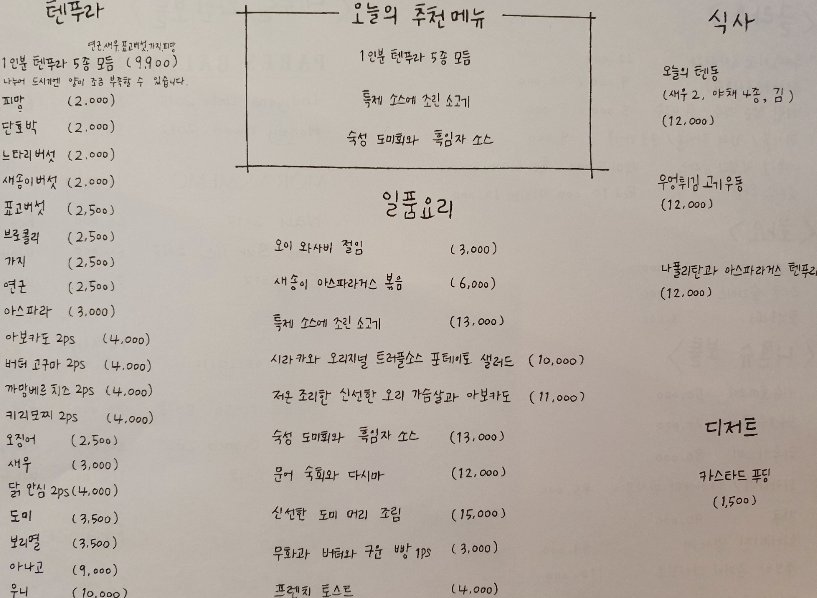 텐푸라
연근,새우,표고버섯,가지,피망
1인분 텐푸라 5종 모듬 (9,900)
나누어 드시기엔 양이 조금 부족할 수 있습니다.
피망 (2,000)
단호박 (2,000)
느타리버섯 (2,000)
새송이버섯 (2,000)
표고버섯 (2,500)
브로콜리 (2,500)
가지 (2,500)
연근 (2,500)
아스파라 (3,000)
아보카도 2ps (4,000)
버터 고구마 2ps (4,000)
까망베르 치즈 2ps (4,000)
키리모찌 2ps (4,000)
오징어 (2,500)
새우 (3,000)
닭 안심 2ps (4,000)
도미 (3,500)
보리멸 (3,500)
아나고 (9,000)
우니 (10,000)
오늘의 추천메뉴
1인분 텐푸라 5종 모듬
특제 소스에 조린 소고기
숙성 도미회와 흑임자 소스
일품요리
오이 와사비 절임 (3,000)
새송이 아스파라거스 볶음 (6,000)
특제 소스에 조린 소고기 (13,000)
시라카와 오리지널 트러플소스 포테이토 샐러드 (10,000)
저온 조리한 신선한 오리 가슴살과 아보카도 (11,000)
숙성 도미회와 흑임자 소스 (13,000)
문어 숙회와 다시마 (12,000)
신선한 도미 머리 조림 (15,000)
무화과 버터와 구운 빵 1ps (3,000)
프렌치 토스트 (4,000)
식사
오늘의 텐동
(새우2, 야채 4종, 김)
(12,000)
우엉튀김 고기우동
(12,000)
나폴리탄과 아스파라거스 텐푸라
(12,000)
디저트
카스타드 푸딩
(1,500)